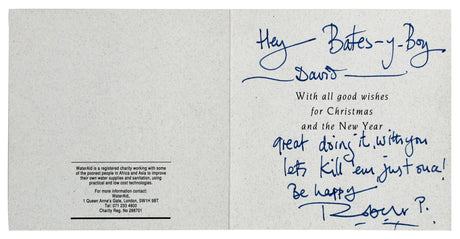 WaterAid is a registered charity working with some
of the poorest people in Africa and Asia to improve
their own water supplies and sanitation, using
practical and low cost technologies.
For more information contact:
WaterAid,
1 Queen Anne's Gate, London, SW1H 9BT
Tel: 071 233 4800
Charity Reg. No 288701
Hey Bates-y-Boy
David
With all good wishes
for Christmas
and the New Year
great doing it, with you
lets kill 'em just once!
Be happy
Robert P.